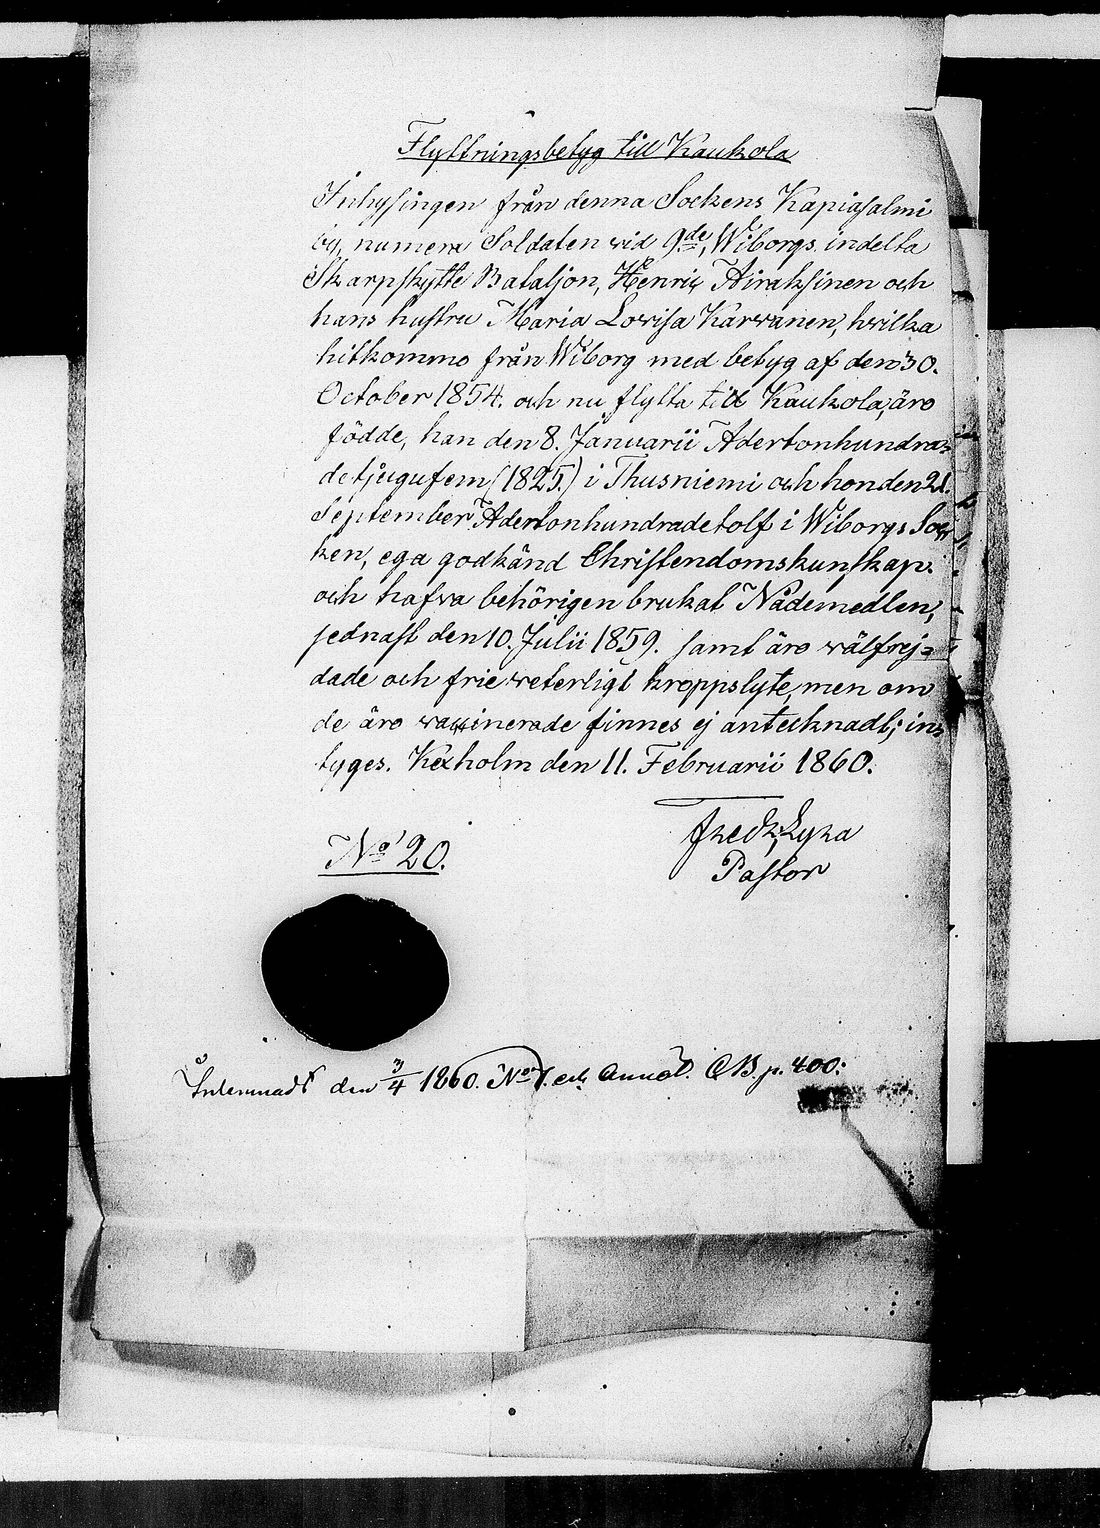 Flyttningsbetyg till Kaukola
Inhysingen från denna Sockens Kapiasalmi
by, numera Soldaten vid 9.de, Wiborgs indelta
Skarpskytte Bataljon, Henric Airaksinen och
hans hustru Maria Lovisa Karvanen, hvilka
hitkommo från Wiborg med betyg af den 30.
October 1854. och nu flytta till Kaukola, äro
födde, han den 8. Januarii Adertonhundra-
detjugufem (1825.) i Thusniemi och hon den 21.
September Adertonhundradetolf i Wiborgs Soc-
ken, ega godkänd Christendomskunskap.
och hafva behörigen brukat Nådemedlen,
sednast den 10. Julii 1859. samt äro välfrej-
dade och frie veterligt kroppslyte, men om
de äro vaccinerade finnes ej antecknadt; in-
tyges. Kexholm den 11. Februarii 1860.
Fredr. Lyra
No 20.
Pastor
Inlemnadt den 3/4 1860. No 7. och Annot. C B. p. 400: